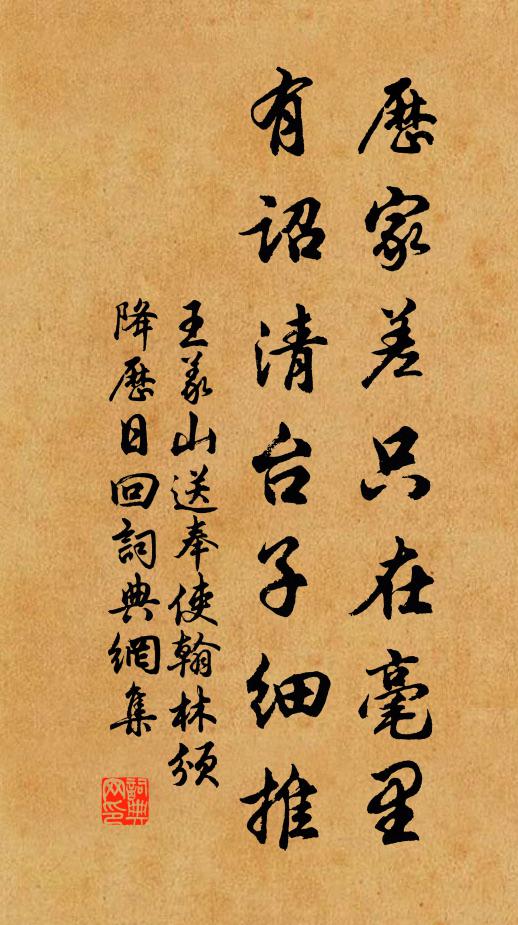 歷家差只在毫里
有詔清台子細推
王義山送奉使翰林頒
降歷日回詞典網集
詞典
网印